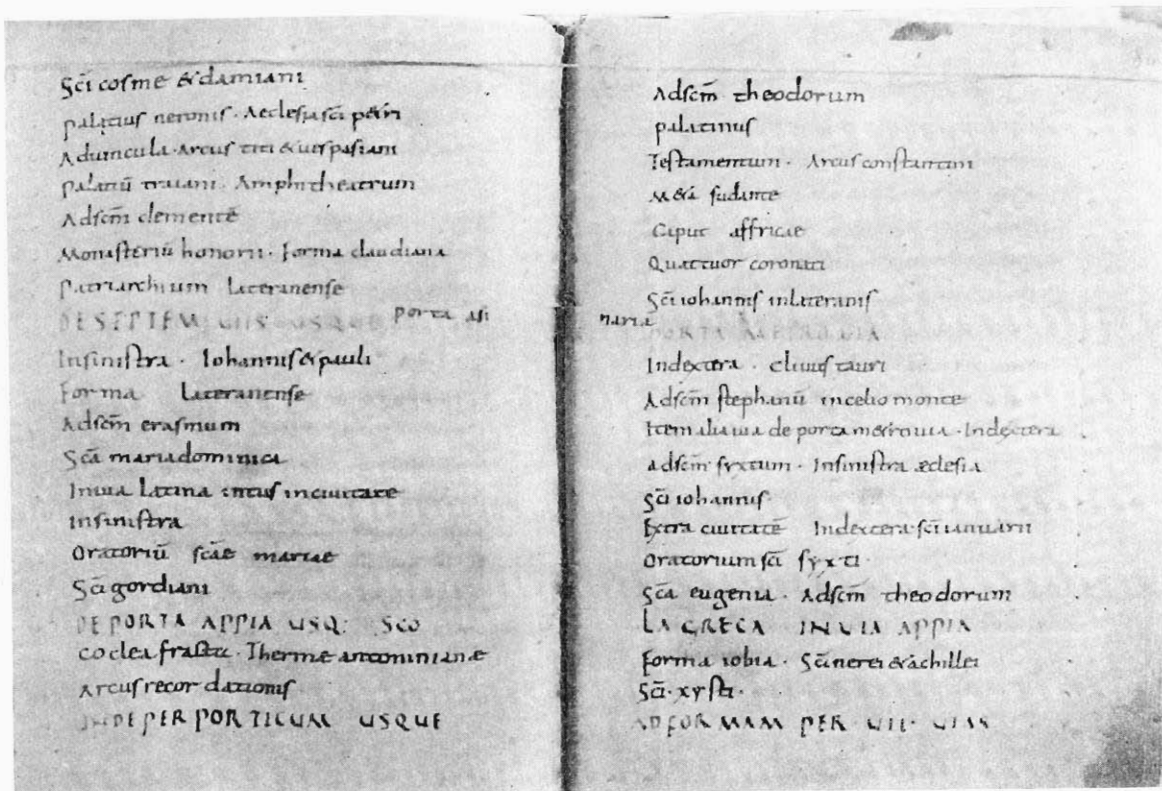 Scī cosme & damiani
palatius neronis · Aeclesia scī petri
Aduincula · Arcus titi & uespasiani
palatiū traiani · Amphitheatrum
Adscm̄ clementē
Monasteriū honorii · forma claudiana
patriarchium lateranense
DE SEPTEM UIIS USQUE porta asi
Insinistra · Iohannis & pauli
Forma lateranense
Adscm̄ erasmum
Scā mariadominica
Inuia latina intus inciuitate
Insinistra
Oratoriū scāe mariae
Scī gordiani
DE PORTA APPIA USQ: SCO
coclea fracta · Thermæ antoninianæ
Arcus recordationis
INDE PER PORTICUM USQUE
Adscm̄ theodorum
palatinus
Testamentum · Arcus constantini
Meta sudante
Caput affricae
Quattuor coronati
Scī iohannis inlateranis
naria PORTA METROUIA
Indextera · cliuus tauri
Adscm̄ stephanū incelio monte
Item alia uia de porta metrouia · Indextera
adscm̄ syxtum · Insinistra æclesia
Scī iohannis
Extra ciuitatē Indextera scī ianuarii
Oratorium scī syxti ·
Scā eugenia · Adscm̄ theodorum
LA GRECA IN UIA APPIA
forma iobia · Scī nerei & achillei
Scī · xysti ·
AD FORMAM PER · UII · UIAS